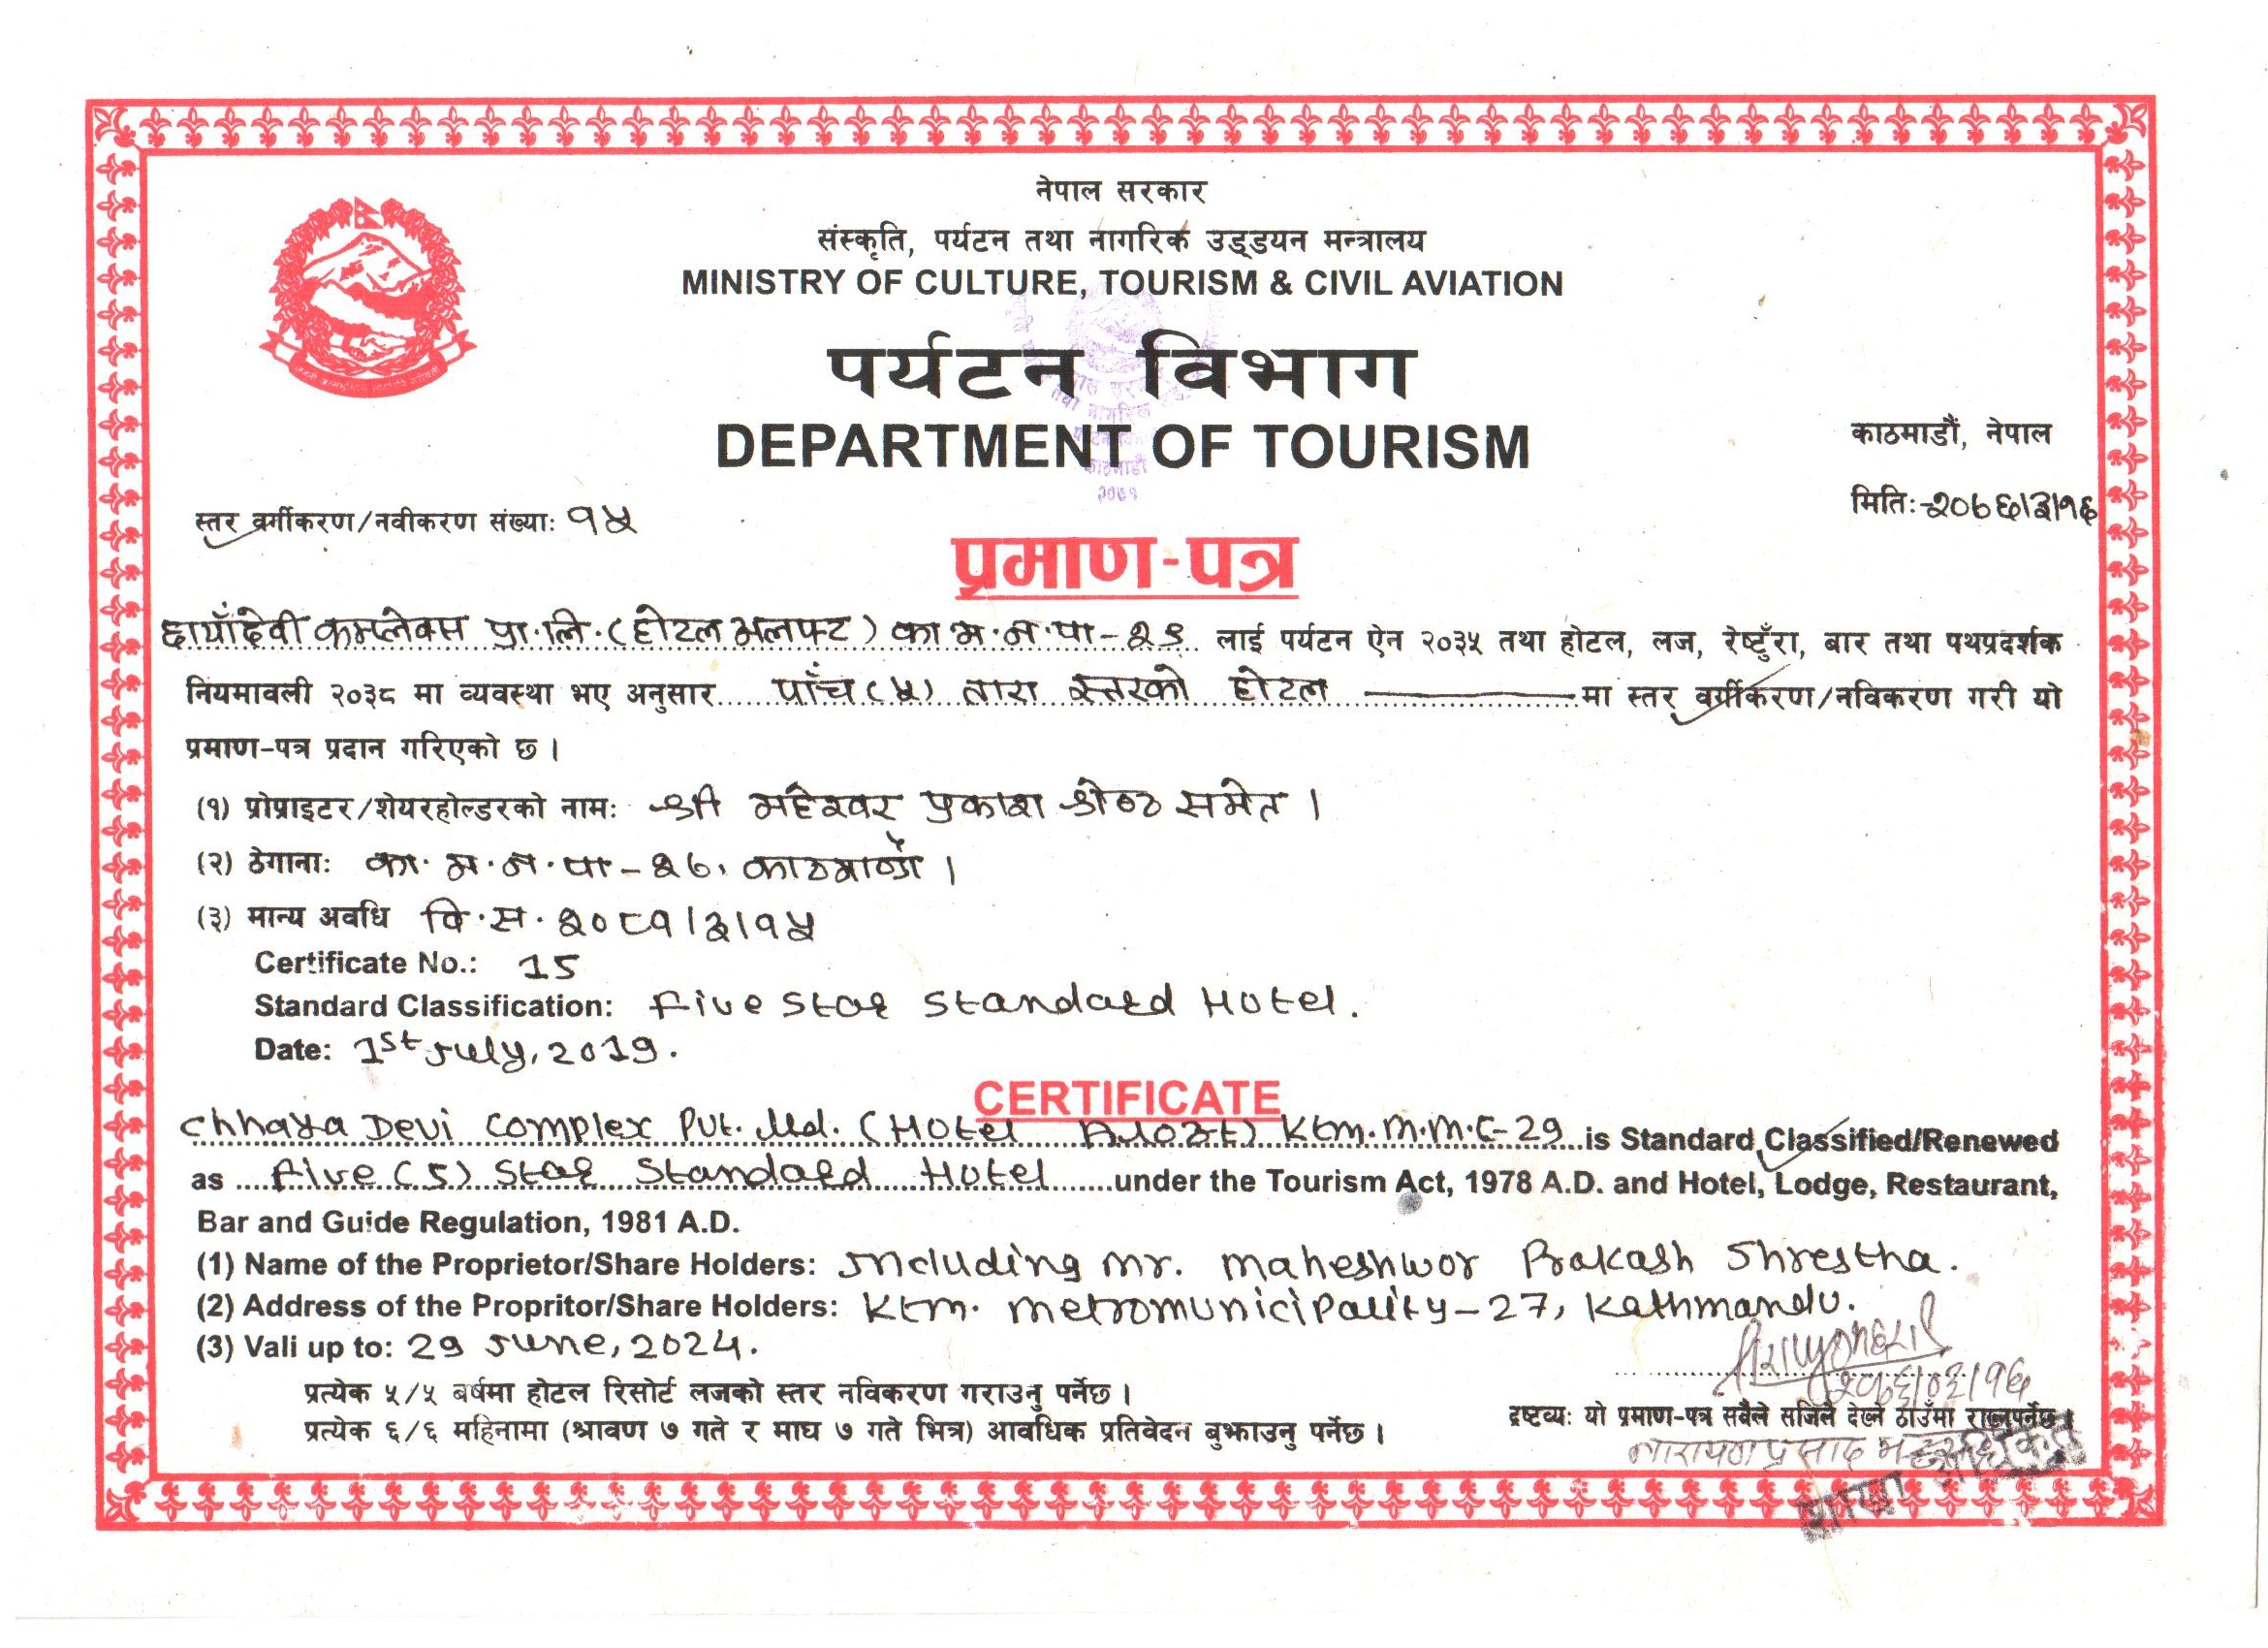 नेपाल सरकार
संस्कृति, पर्यटन तथा नागरिक उड्डयन मन्त्रालय
MINISTRY OF CULTURE, TOURISM & CIVIL AVIATION
पर्यटन विभाग
DEPARTMENT OF TOURISM
काठमाडौं, नेपाल
स्तर वर्गीकरण/नवीकरण संख्याः १५
मितिः-२०७६।३।१६
प्रमाण-पत्र
छायाँदेवी कम्प्लेक्स प्रा.लि.(होटल अलफ्ट) का.म.न.पा-२९ लाई पर्यटन ऐन २०३५ तथा होटल, लज, रेष्टुँरा, बार तथा पथप्रदर्शक
नियमावली २०३८ मा व्यवस्था भए अनुसार पाँच(५) तारा स्तरको होटल मा स्तर वर्गीकरण/नविकरण गरी यो
प्रमाण-पत्र प्रदान गरिएको छ ।
(१) प्रोप्राइटर/शेयरहोल्डरको नामः श्री महेश्वर प्रकाश श्रेष्ठ समेत ।
(२) ठेगानाः का.म.न.पा-२७, काठमाण्डौं ।
(३) मान्य अवधि वि.स.२०८१।३।१५
Certificate No.: 15
Standard Classification: Five Star Standard Hotel.
Date: 1st July, 2019.
CERTIFICATE
Chhaya Devi Complex Pvt. Ltd. (Hotel Aloft) Ktm.M.M.C-29 is Standard Classified/Renewed
as Five (5) Star Standard Hotel under the Tourism Act, 1978 A.D. and Hotel, Lodge, Restaurant,
Bar and Guide Regulation, 1981 A.D.
(1) Name of the Proprietor/Share Holders: Including Mr. Maheshwor Prakash Shrestha.
(2) Address of the Propritor/Share Holders: Ktm. Metromunicipality-27, Kathmandu.
(3) Vali up to: 29 June, 2024.
२०७६/०३/१६
प्रत्येक ५/५ बर्षमा होटल रिसोर्ट लजको स्तर नविकरण गराउनु पर्नेछ ।
द्रष्टव्यः यो प्रमाण-पत्र सबैले सजिलै देख्ने ठाउँमा राख्नुपर्नेछ ।
प्रत्येक ६/६ महिनामा (श्रावण ७ गते र माघ ७ गते भित्र) आवधिक प्रतिवेदन बुझाउनु पर्नेछ ।
नारायण प्रसाद
शाखा अधिकृत